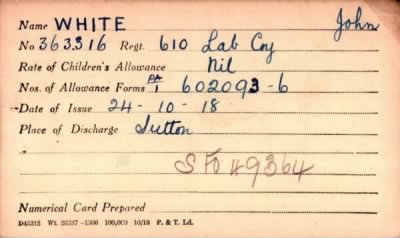 Name WHITE John
No 363316 Regt. 610 Lab Coy
Rate of Children's Allowance Nil
Nos. of Allowance Forms PA/1 602093-6
Date of Issue 24-10-18
Place of Discharge Sutton
SFO 49364
Numerical Card Prepared
D45312 Wt. 26337-1506 100,000 10/18 P. & T. Ld.